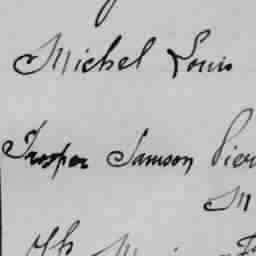 Michel Louis
Trooper Samson Pier
M